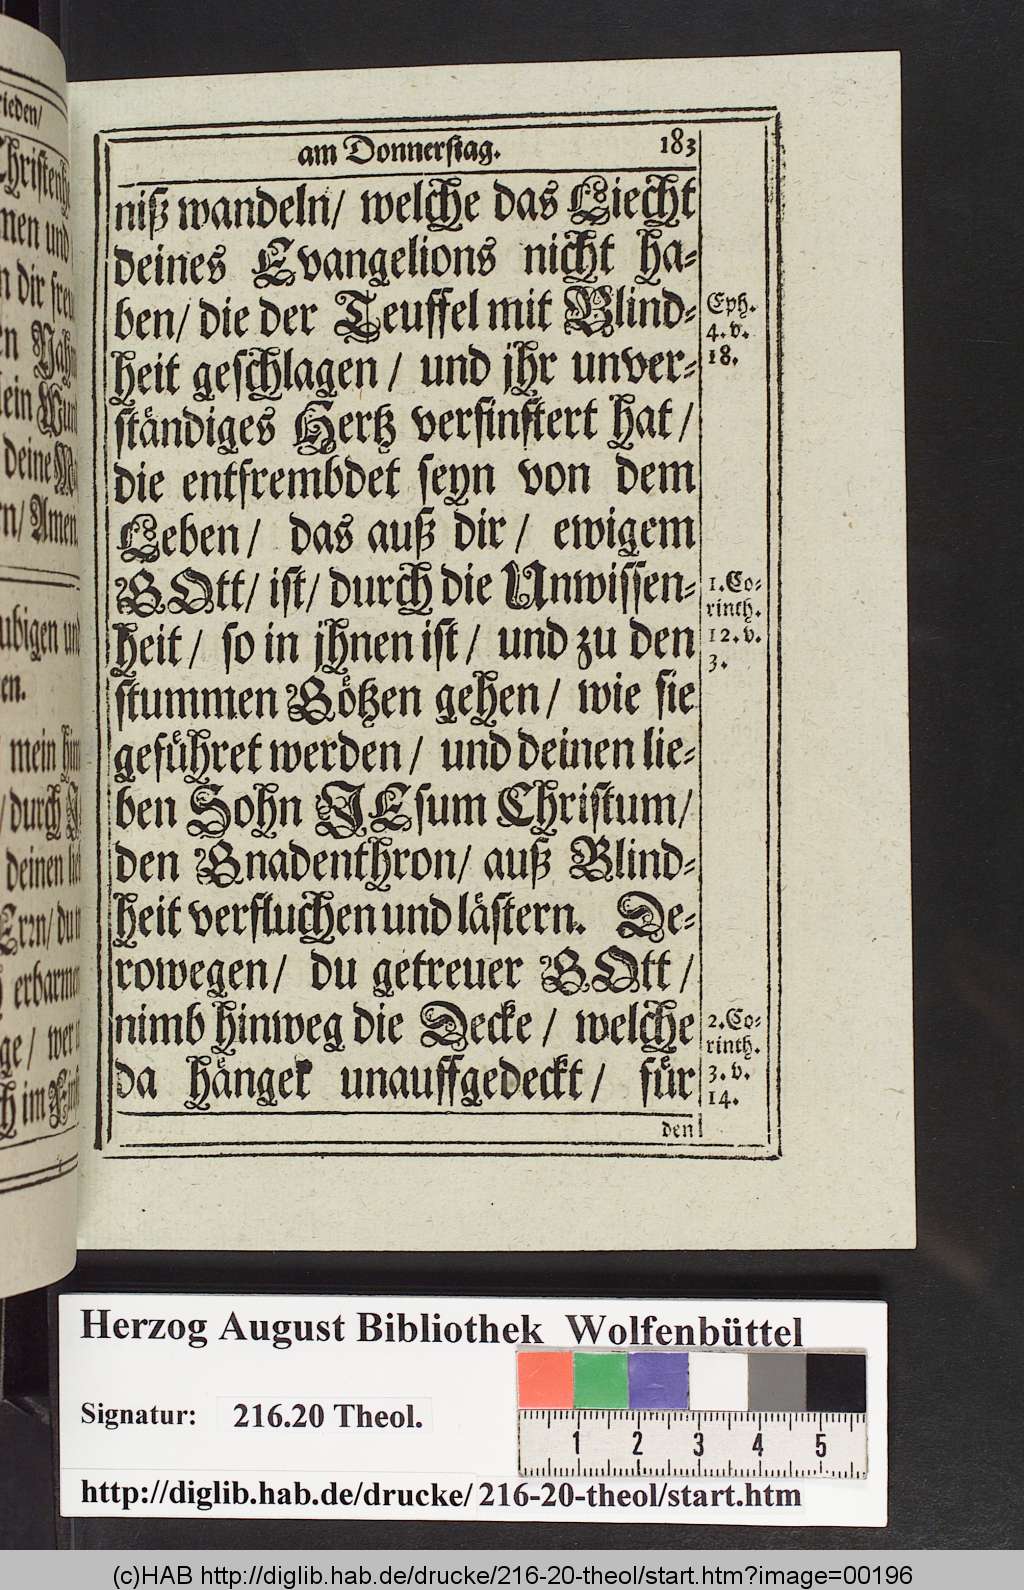 rieden/
am Donnerstag. 183
niß wandeln/ welche das Liecht
deines Evangelions nicht ha-
ben/ die der Teuffel mit Blind-
heit geschlagen / und jhr unver-
ständiges Hertz verfinstert hat /
die entfrembdet seyn von dem
Leben / das auß dir / ewigem
GOtt/ ist/ durch die Unwissen-
heit / so in jhnen ist / und zu den
stummen Götzen gehen / wie sie
geführet werden / und deinen lie-
ben Sohn JEsum Christum/
den Gnadenthron/ auß Blind-
heit verfluchen und lästern. De-
rowegen / du getreuer GOtt /
nimb hinweg die Decke / welche
da hänget unauffgedeckt / für
den
Eph.
4. v.
18.
1. Co-
rinth.
12. v.
3.
2. Co-
rinth.
3. v.
14.
men und
n dir freu
deine
rn/ Amen.
ubigen und
en.
mein him
/ durch J
deinen lie
Ern/ du
erbarme
ge / wer
h im Finst
Herzog August Bibliothek Wolfenbüttel
Signatur: 216.20 Theol.
1 2 3 4 5
http://diglib.hab.de/drucke/216-20-theol/start.htm
(c)HAB http://diglib.hab.de/drucke/216-20-theol/start.htm?image=00196